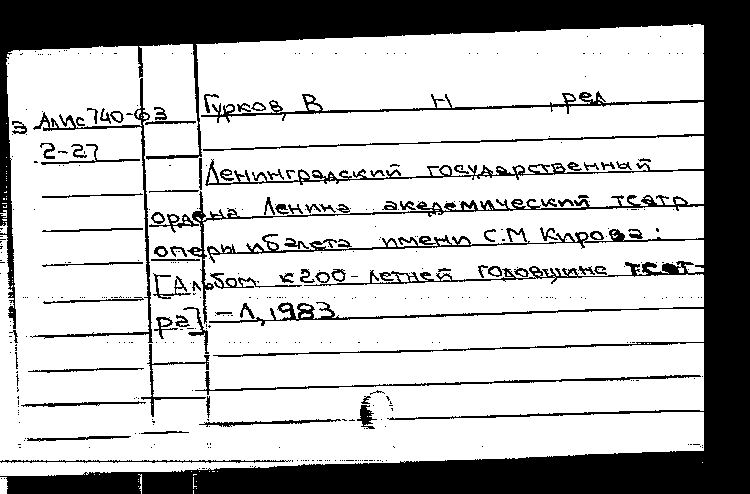 Гурков, В Н ред
Э АлИс740-63
2-27
Ленинградский государственный
ордена Ленина академический театр
оперы и балета имени С.М Кирова:
[Альбом к 200-летней годовщине теат-
ра] - Л, 1983